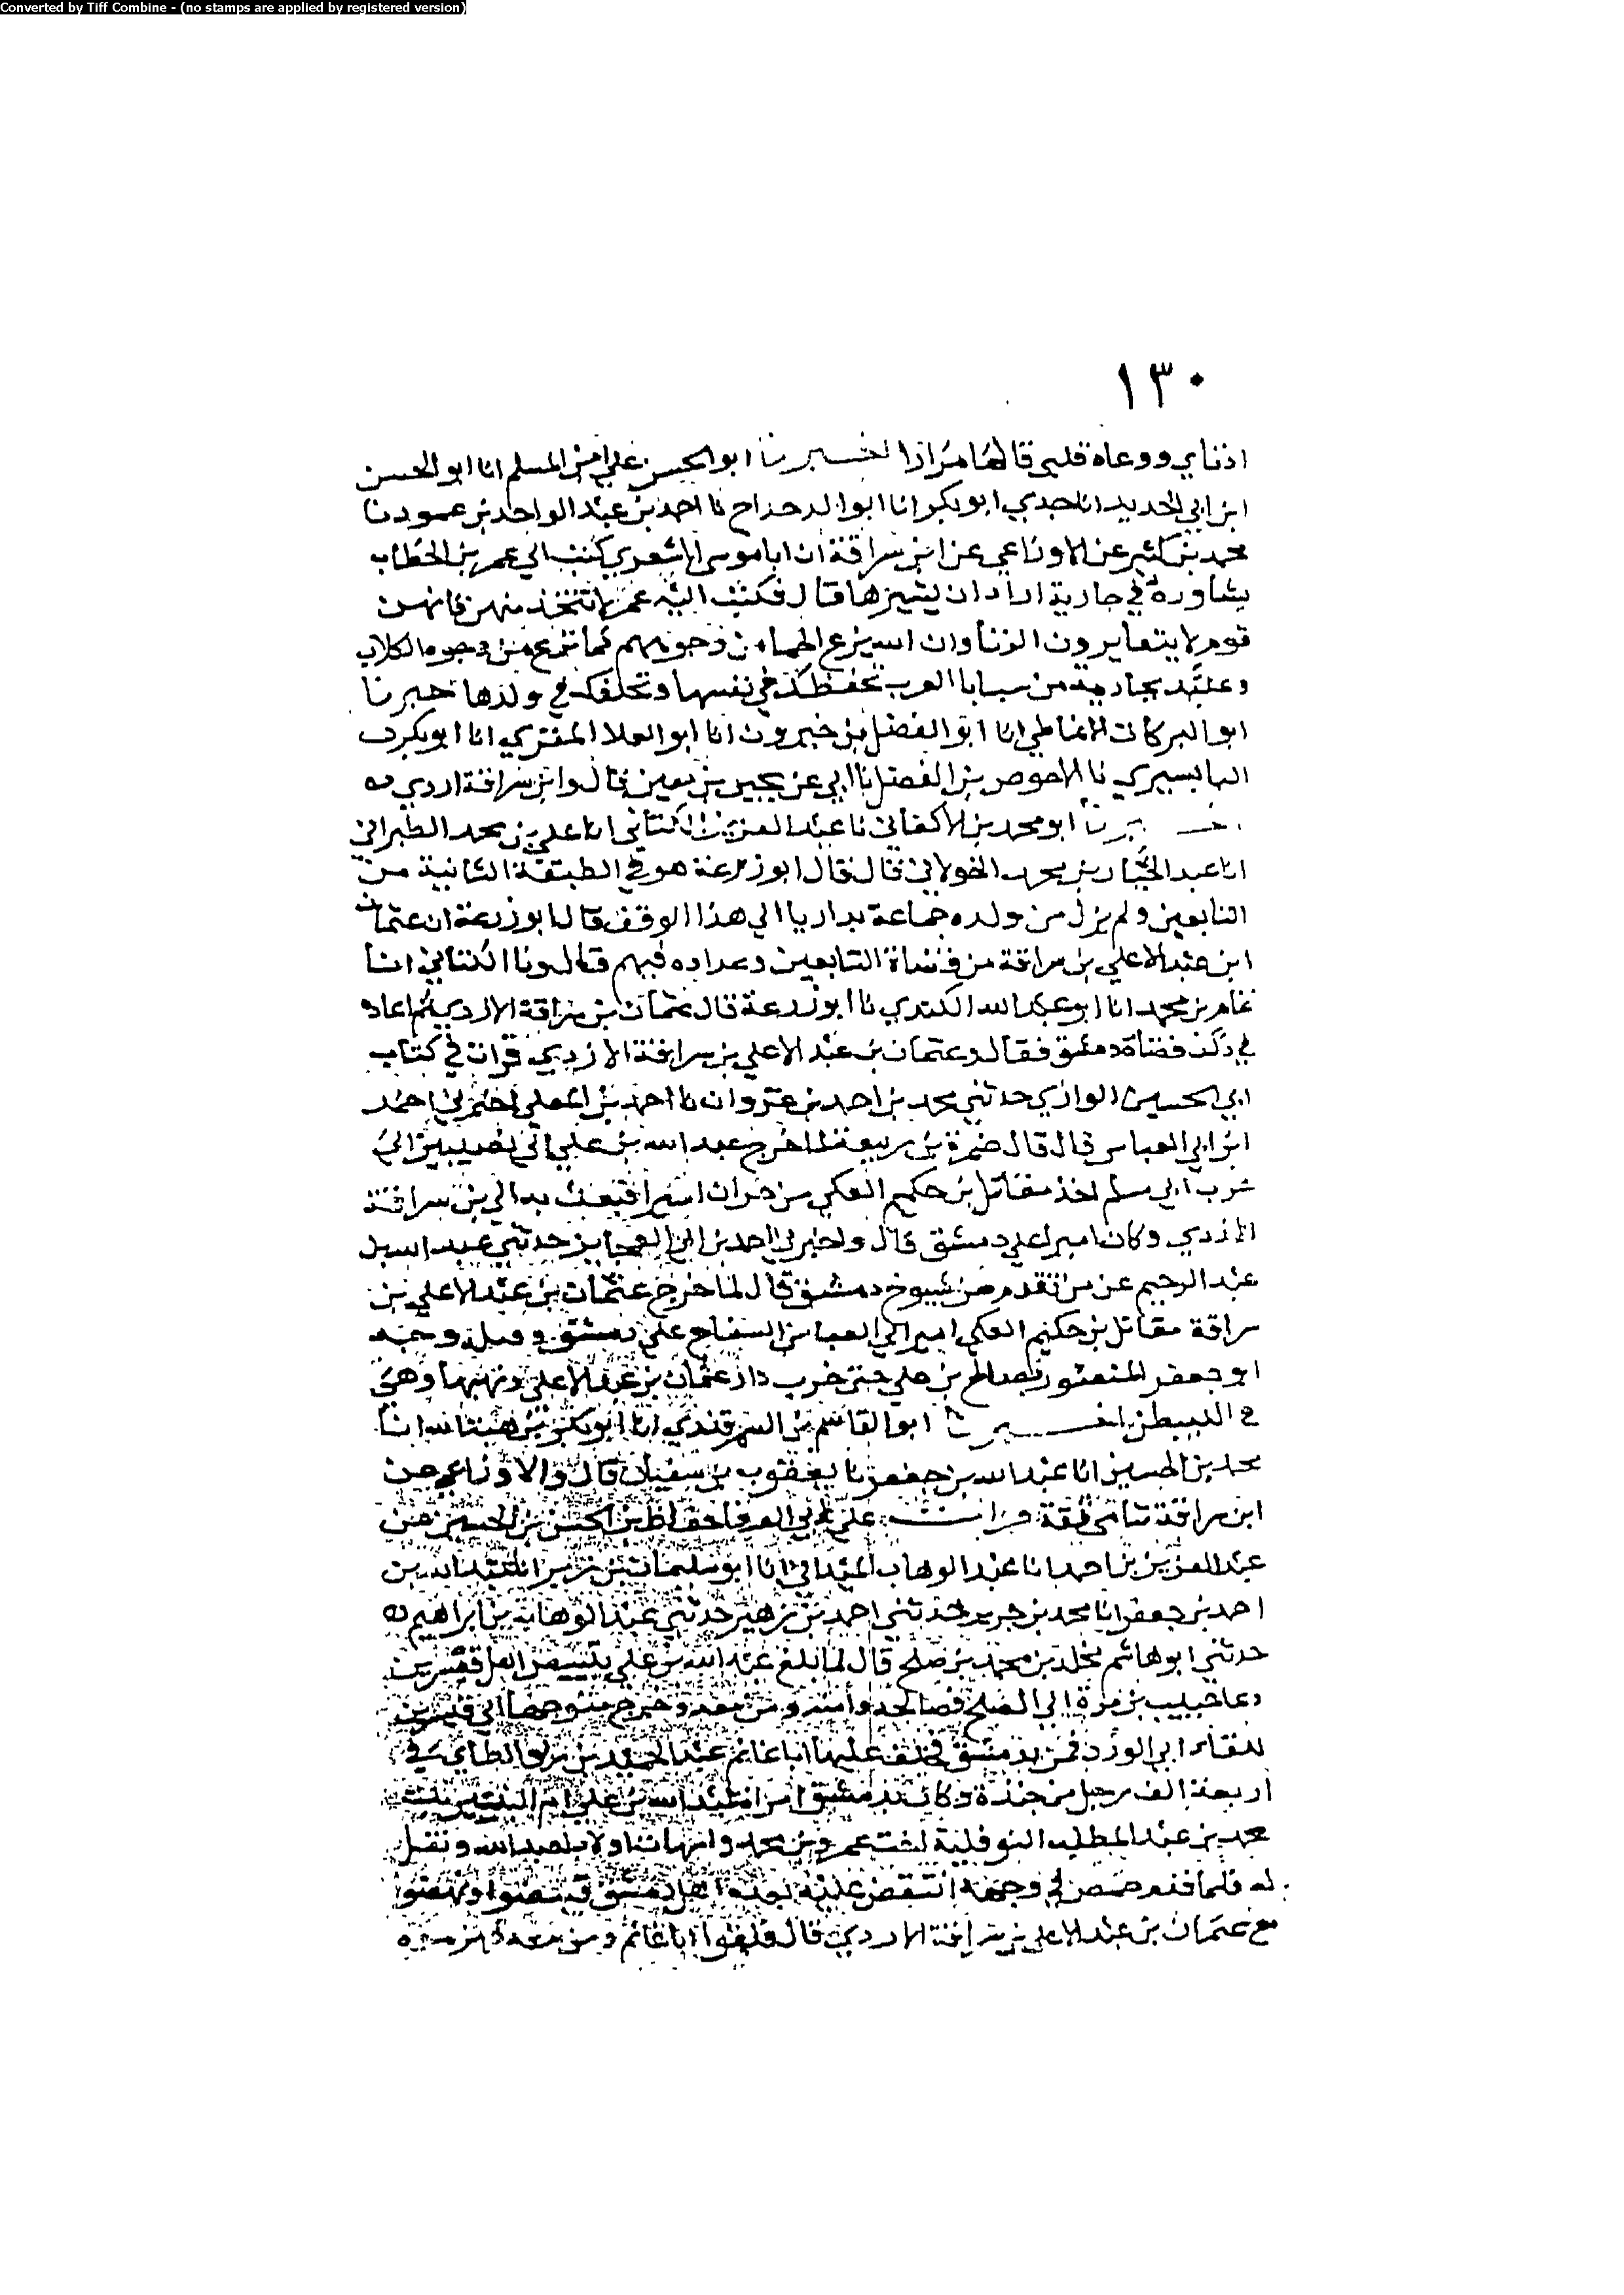 Converted by Tiff Combine - (no stamps are applied by registered version)
١٣٠
اذناي ووعاه قلبي قالها مرارا اخبرنا ابو الحسن علي بن المسلم انا ابو الحسن
ابن ابي الحديد انا جدي ابو بكر انا ابو الدحداح نا احمد بن عبد الواحد بن عبود نا
محمد بن كثير عن الاوزاعي عن ابن سراقة ان ابا موسى الاشعري كتب الى عمر بن الخطاب
يشاوره في جارية اراد ان يشتريها قال فكتب اليه عمر لا تتخذ منهن فانهن
قوم لا يتعايرون الزنا وان الله نزع الحياء من وجوههم كما نزع من وجوه الكلاب
وعليك بجارية من سبايا العرب تحفظك في نفسها وتخلفك في ولدها اخبرنا
ابو البركات الانماطي انا ابو الفضل بن خيرون انا ابو العلا انا ابو بكر
البابسيري نا الاحوص بن الفضل نا ابي عن يحيى بن معين قال وابن سراقة ازدي
اخبرنا ابو محمد بن الاكفاني نا عبد العزيز الكتاني انا علي بن محمد الطبراني
انا عبد الجبار بن محمد الخولاني قال قال ابو زرعة هو في الطبقة الثانية من
التابعين ولم يزل من ولده جماعة بداريا الى هذا الوقف قال ابو زرعة ان عثمان
ابن عبد الاعلى بن سراقة من قضاة التابعين وعداده فيهم قال ونا الكتاني انا
تمام بن محمد انا ابو عبد الله الكندي نا ابو زرعة قال عثمان بن سراقة الازدي ثم اعاد
في ذكر قضاة دمشق فقال وعثمان بن عبد الاعلى بن سراقة الازدي قرات في كتاب
ابي الحسين الرازي حدثني محمد بن احمد بن غزوان نا احمد بن المعلى اخبرني احمد
ابن ابي العباس قال قال ضمرة بن ربيعة لما خرج عبد الله بن علي الى نصيبين الى
حرب ابي مسلم اخذ مقاتل بن حكيم العكي من حران اسيرا فبعث به الى بن سراقة
الازدي وكان اميرا على دمشق قال واخبرني احمد بن ابي العجايز حدثني عبد الله بن
عبد الرحيم عن من تقدم من شيوخ دمشق قال لما خرج عثمان بن عبد الاعلى بن
سراقة مقاتل بن حكيم العكي امير ابي العباس السفاح على دمشق وجه
ابو جعفر المنصور بصالح بن علي حتى خرب دار عثمان بن عبد الاعلى ونهبها وهي
اخبرنا ابو القاسم بن السمرقندي انا ابو بكر بن هبة الله انا
محمد بن الحسين انا عبد الله بن جعفر نا يعقوب بن سفيان قال والاوزاعي عن
ابن سراقة شامي ثقة قرات على ابي الوفا حفاظ بن الحسن بن الحسين عن
عبد العزيز بن احمد انا عبد الوهاب الميداني انا ابو سليمان بن زبر انا عبد الله بن
احمد بن جعفر انا محمد بن جرير حدثني احمد بن زهير حدثني عبد الوهاب بن ابراهيم
حدثني ابو هاشم مخلد بن محمد بن صالح قال لما بلغ عبد الله بن علي تبييض اهل قنسرين
دعا حبيب بن مرة الى الصلح فصالحه وامنه ومن معه وخرج متوجها الى قنسرين
للقاء ابي الورد فمر بدمشق فخلف عليها ابا غانم عبد الحميد بن ربعي الطاي في
اربعة الف رجل من جنده وكان بدمشق امراة عبد الله بن علي ام البنين بنت
محمد بن عبد المطلب النوفلية اخت عمرو بن محمد وامهات اولاد لعبد الله وثقل
له فلما قدم حمص في وجهه انتقض عليه بعده اهل دمشق فبيضوا ونهضوا
مع عثمان بن عبد الاعلى بن سراقة الازدي قال فلقوا ابا غانم ومن معه فهزموه